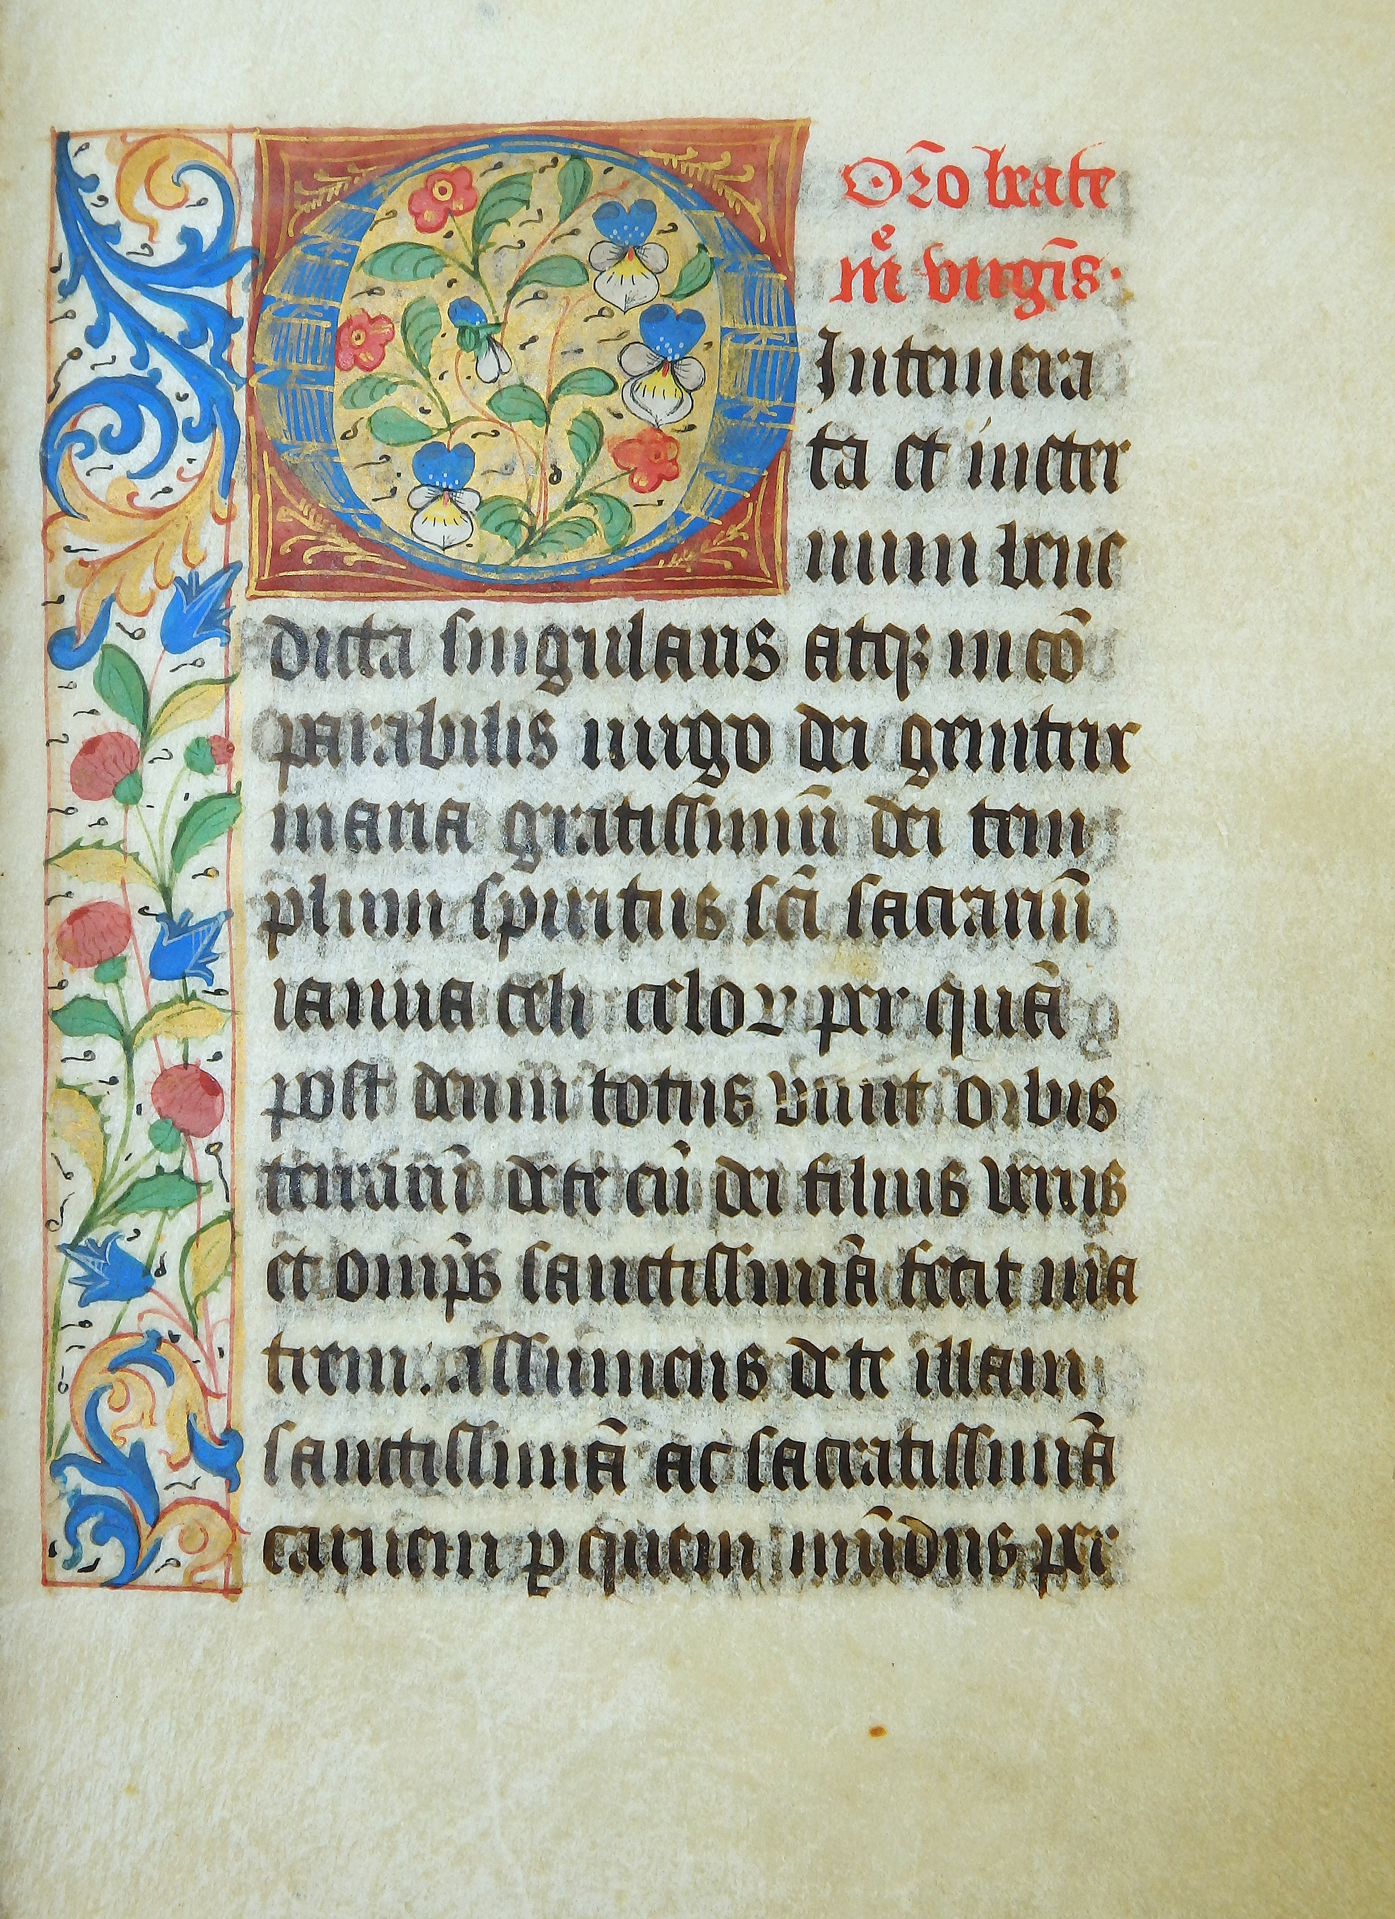 Or̄o beate
mͤ virgīs·
O Intemera
ta et in eter
num bene
dicta singularis atqꝫ incō
parabilis uirgo dei genitrix
maria gratissimū dei tem
plum spiritus sc̄i sacrariū
ianua celi celoꝝ per quā
post deum totus viuit orbis
terrarū de te em̄ dei filius verus
et omip̄s sanctissimā fecit ma
trem. assumens de te illam
sanctissimā ac sacratissimā
carnem ꝑ quem mūdus per